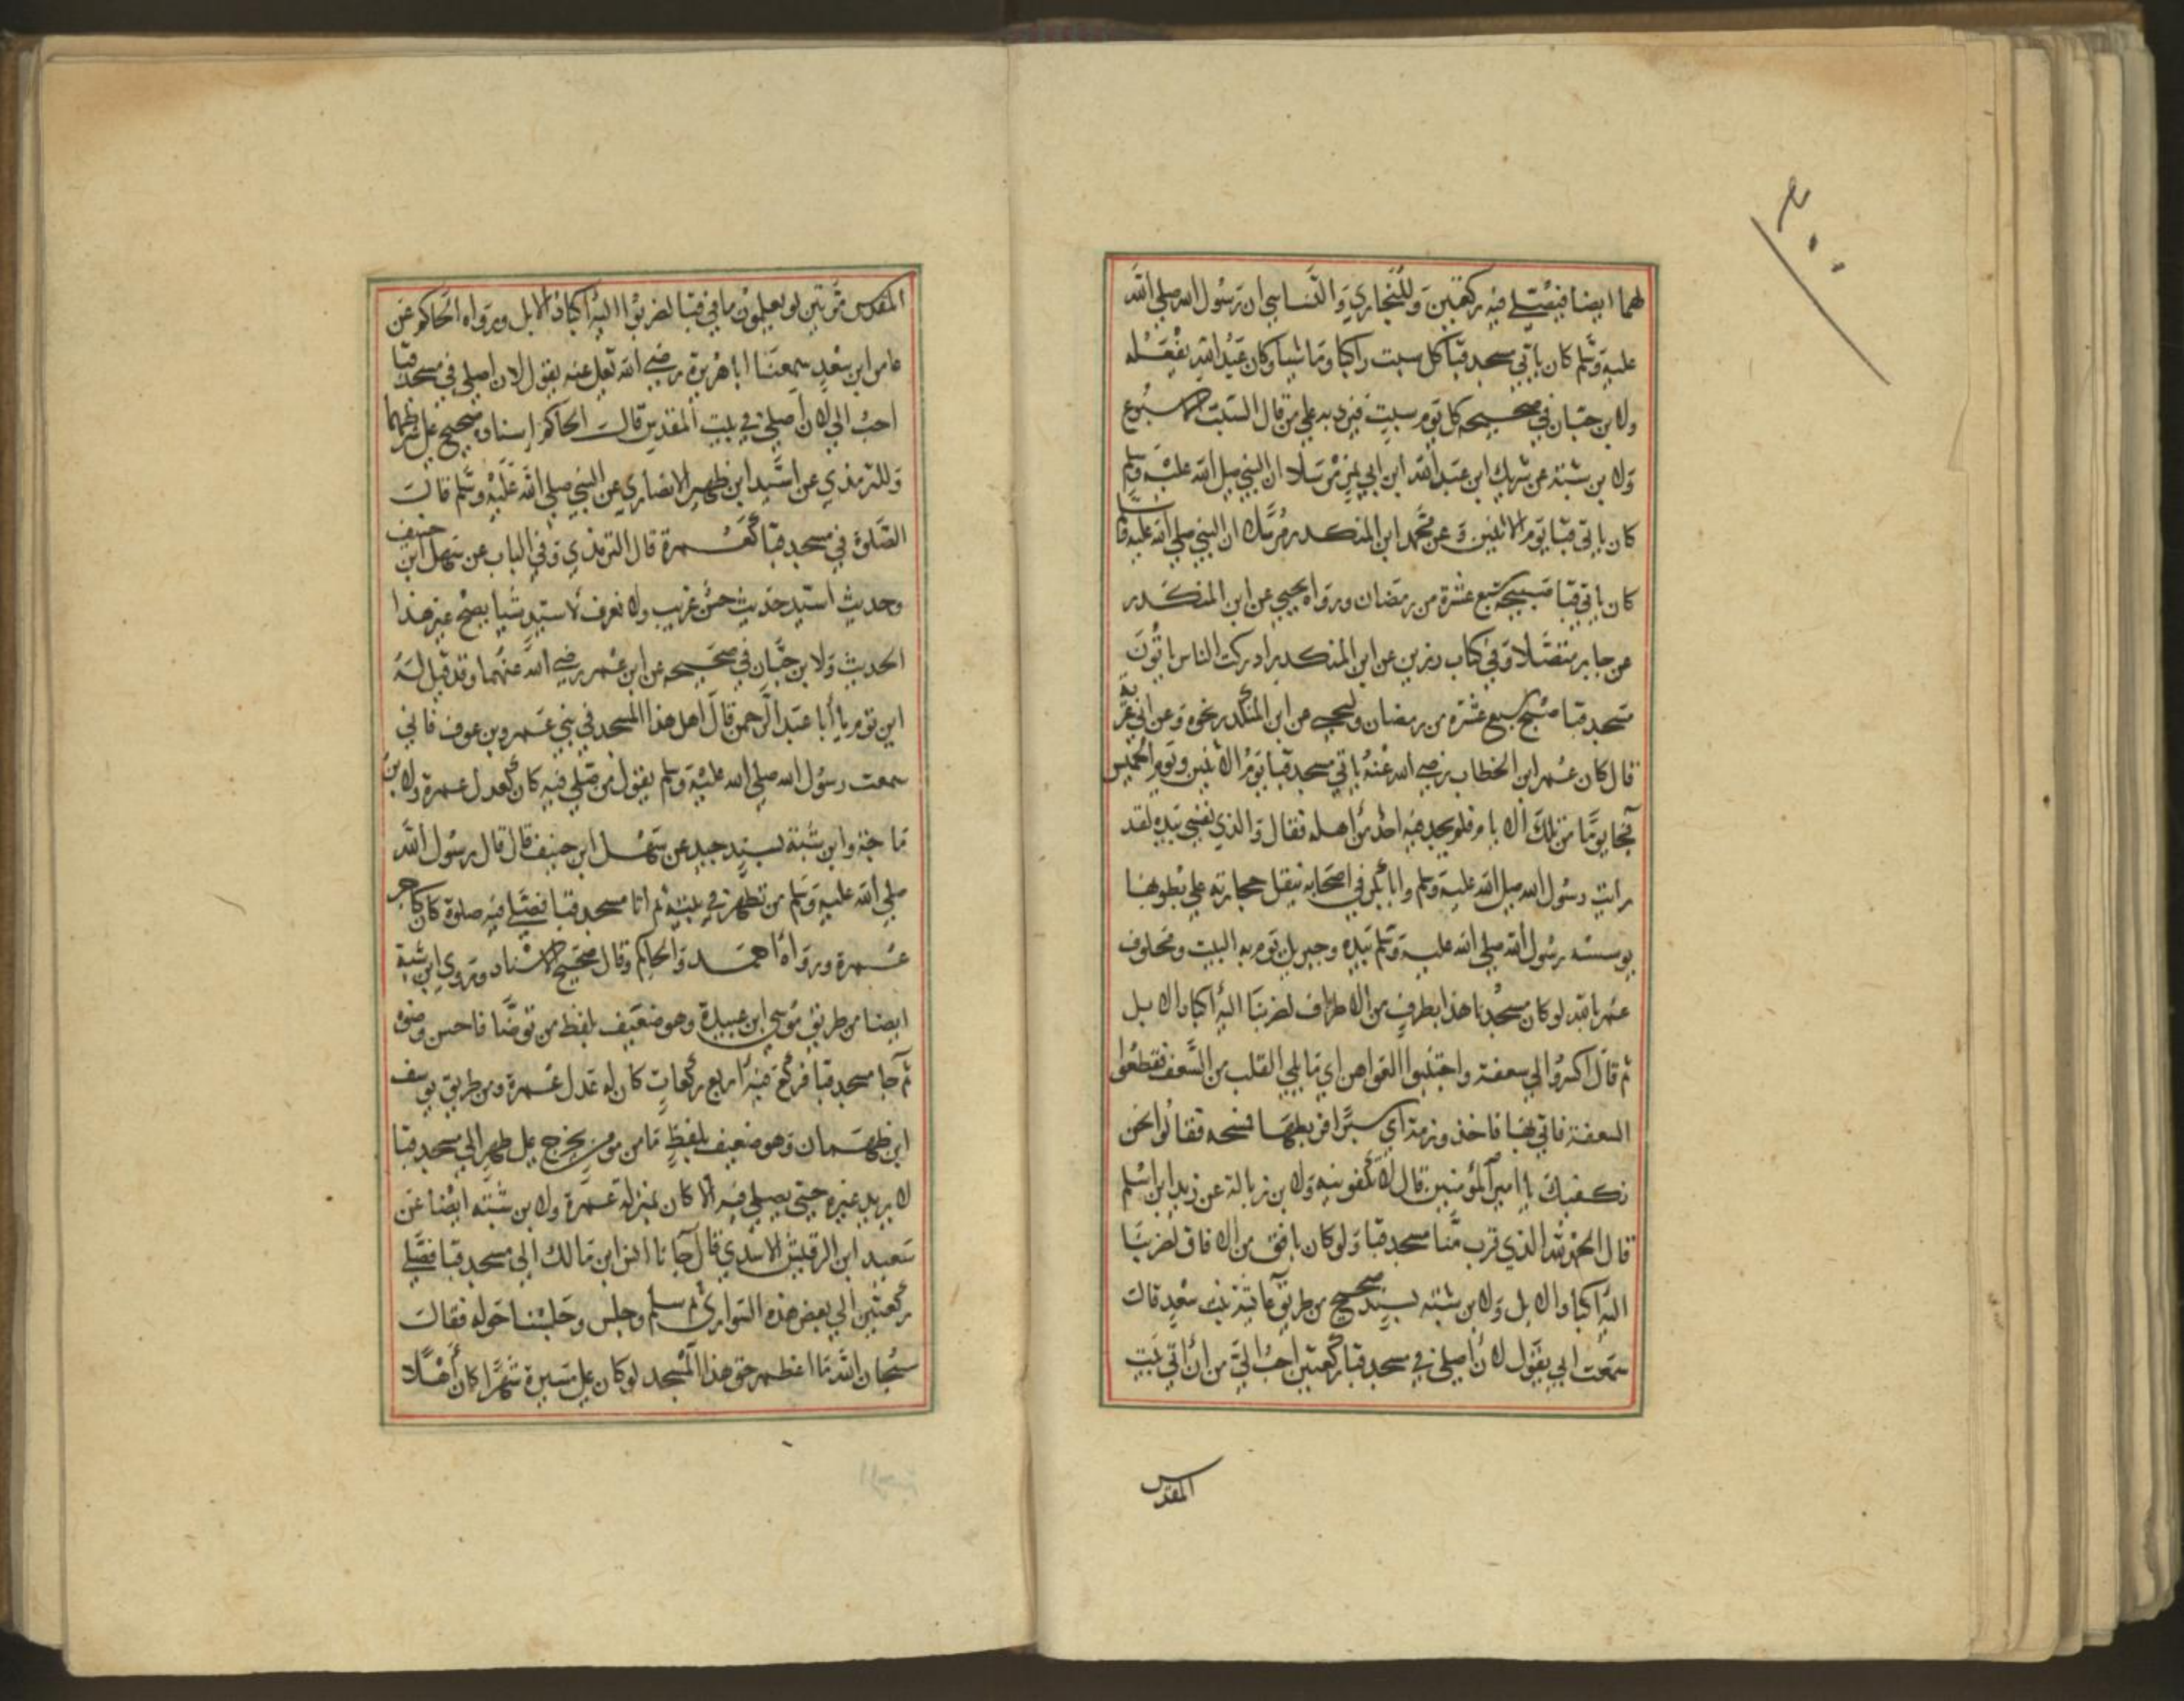 ٢٠٠
لهما ايضا فيصلي فيه ركعتين وللبخاري والنسايي ان رسول الله صلي الله
عليه وسلم كان ياتي مسجد قبا كل سبت راكبا وماشيا وكان عبد الله يفعله
ولابن حبان في صحيحه كل يوم سبت فيرد به علي من قال السبت الاسبوع
ولابن شبة عن شريك ابن عبد الله ابن ابي نمر مرسلا ان النبي صلي الله عليه وسلم
كان ياتي قبا يوم الاثنين وعن محمد ابن المنكدر مرسلا ان النبي صلي الله عليه
كان ياتي قبا صبيحة سبع عشرة من رمضان ورواه يحيي عن ابن المنكدر
عن جابر متصلا وفي كتاب رزين عن ابن المنكدر ادركت الناس ياتون
مسجد قبا صبح سبع عشرة من رمضان وليحيي عن ابن المنكدر نحوه وعن ابي غزية
قال كان عمر ابن الخطاب رضي الله عنه ياتي مسجد قبا يوم الاثنين ويوم الخميس
فجا يوما من تلك الايام فلم يجد فيه احدا من اهله فقال والذي نفسي بيده لقد
رايت رسول الله صلي الله عليه وسلم وابا بكر في اصحابه ننقل حجارته علي بطوننا
يوسسه رسول الله صلي الله عليه وسلم بيده وجبريل يوم به البيت ومحلوف
عمر بالله لو كان مسجدنا هذا بطرف من الاطراف لضربنا اليه اكباد الابل
ثم قال اكسروا لي سعفة واجتنبوا العواهن اي ما يلي القلب من السعف فقطعوا
السعفة فاتي بها فاخذ رزمة اي سيرا فربطها فمسحه فقالوا نحن
نكفيك يا امير المؤمنين قال لا تكفونيه ولابن زبالة عن زيد ابن اسلم
قال الحمد لله الذي قرب منا مسجد قبا ولو كان بافق من الافاق لضربنا
اليه اكباد الابل ولابن شبة بسند صحيح من طريق عايشة بنت سعد قالت
سمعت ابي يقول لان اصلي في مسجد قبا ركعتين احب الي من ان اتي بيت
المقدس
المقدس مرتين لو يعلمون ما في قبا لضربوا اليه اكباد الابل ورواه الحاكم عن
عامر ابن سعد سمعنا ابا هريرة رضي الله تعلي عنه يقول لان اصلي في مسجد قبا
احب الي لان اصلي في بيت المقدس قالت الحاكم اسناده صحيح علي شرطهما
وللترمذي عن اسيد ابن ظهير الانصاري عن النبي صلي الله عليه وسلم قالت
الصلوة في مسجد قبا كعمرة قال الترمذي وفي الباب عن سهل ابن حنيف
وحديث اسيد حديث حسن غريب ولا نعرف لاسيد شيا يصح غير هذا
الحديث ولابن حبان في صحيحه عن ابن عمر رضي الله عنهما وقد قيل له
اين توم يا ابا عبد الرحمن قال اهل هذا المسجد في بني عمرو بن عوف فاني
سمعت رسول الله صلي الله عليه وسلم يقول من صلي فيه كان كعدل عمرة ولابن
ماجة وابن شبة بسند جيد عن سهل ابن حنيف قال قال رسول الله
صلي الله عليه وسلم من تطهر في بيته ثم اتا مسجد قبا فصلي فيه صلوة كان كاجر
عمرة ورواه احمد والحاكم وقال صحيح الاسناد وروي ابن شبة
ايضا من طريق موسي ابن عبيدة وهو ضعيف بلفظ من توضا فاحسن وضوه
ثم جا مسجد قبا فركع فيه اربع ركعات كان له عدل عمرة ومن طريق يوسف
ابن طهمان وهو ضعيف بلفظ ما من مومن يخرج علي طهر الي مسجد قبا
لا يريد غيره حتي يصلي فيه الا كان بمنزلة عمرة ولابن شبته ايضا عن
سعيد ابن الرقيش الاسدي قال جانا انس ابن مالك الي مسجد قبا فصلي
ركعتين الي بعض هذه السواري ثم سلم وجلس وجلسنا حوله فقالت
سبحان الله ما اعظم حق هذا المسجد لو كان علي مسيرة شهرا كان اهلا